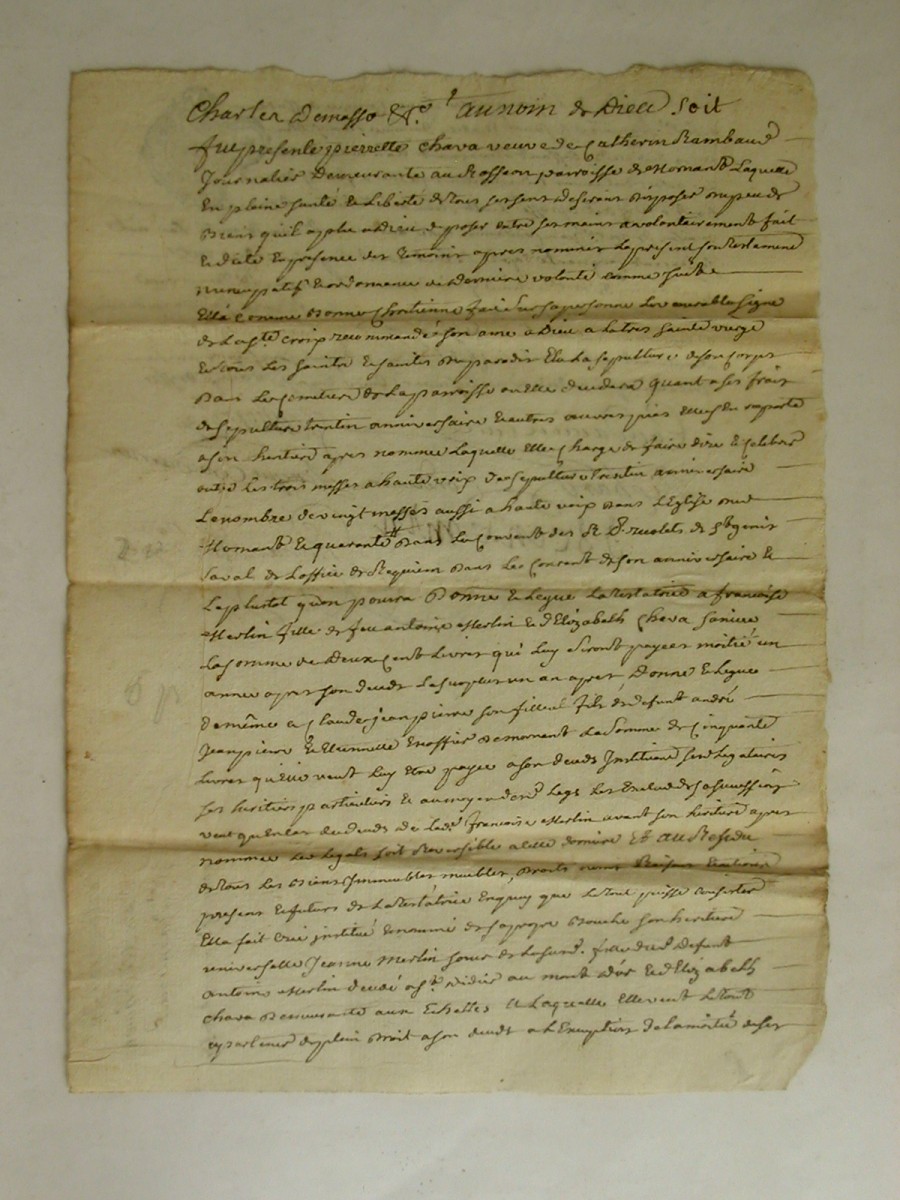 Charles Demasso &c. au nom de Dieu soit
fut presente pierrette Chava veuve de Catherin Rambaud
Journalier Demeurante au Rosseon parroisse de Mornant Laquelle
En pleine santé & Liberté de tous ses sens desirant disposer du peu de
Biens qu'il a plu a Dieu deposer entre ses mains a volontairement fait
& dicté En presence des temoins apres nommés Le present son testament
nuncupatif & ordonnance de derniere volonté comme suit
Ella comme Bonne Chretienne fait sur sa personne Le venerable signe
de La ste croix recommandé son ame a Dieu a La tres sainte vierge
& tous Les saints & saintes du paradis Elu La sepulture de son Corps
Dans Le Cimetiere de La parroisse ou elle decedera quant a ses frais
de sepulture trentin anniversaire & autres œuvres pies Elle s'En rapporte
a son heritiere apres nommée Laquelle Elle Charge de faire dire & Celebrer
outre Les trois messes a haute voix de sepulture trentin anniversaire
Le nombre de vingt messes aussi a haute voix dans L'Eglise dud
Mornant & quarante dans Le Couvent des R. P. de St genis
Laval de L'office de Requiem dans Le Courant de son anniversaire &
Le plustot qu'on pourra Donne & Legue La testatrice a francoise
Merlin fille de feu antoine Merlin & d'Elizabeth Chava sa niece
La somme de Deux Cent Livres qui Luy seront payees moitié un
année apres son decedz Le surplus un an apres Donne & Legue
de même a Claude jeanpierre son filleul fils de defunt andré
Jeanpierre & Etiennette de mornant La somme de Cinquante
Livres qu'elle veut Luy Etre payée a son decedz Instituant ses Legataires
ses heritiers particuliers & au moyen desd Legs Les Exclud de sa succession
veut qu'en Cas du decedz de Lade francoise Merlin avant son heritiere apres
nommée Le Legat soit Reversible a cette derniere Et au Residu
de tous Les Biens Immeubles meubles, droits noms Raisons & actions
presens & futurs de La testatrice En quoy que Le tout puisse consister
Ella fait Créé institué & nommé de sa propre Bouche son heritiere
universelle Jeanne Merlin sœur de Lasusd. fille dud Defunt
antoine Merlin decedé a St Didier au mont d'or & d'Elizabeth
Chava Demeurante aux Echelles & Laquelle Elle veut Le tout
apartenir de plein droit a son decedz a L'Exception de La moitié de ses